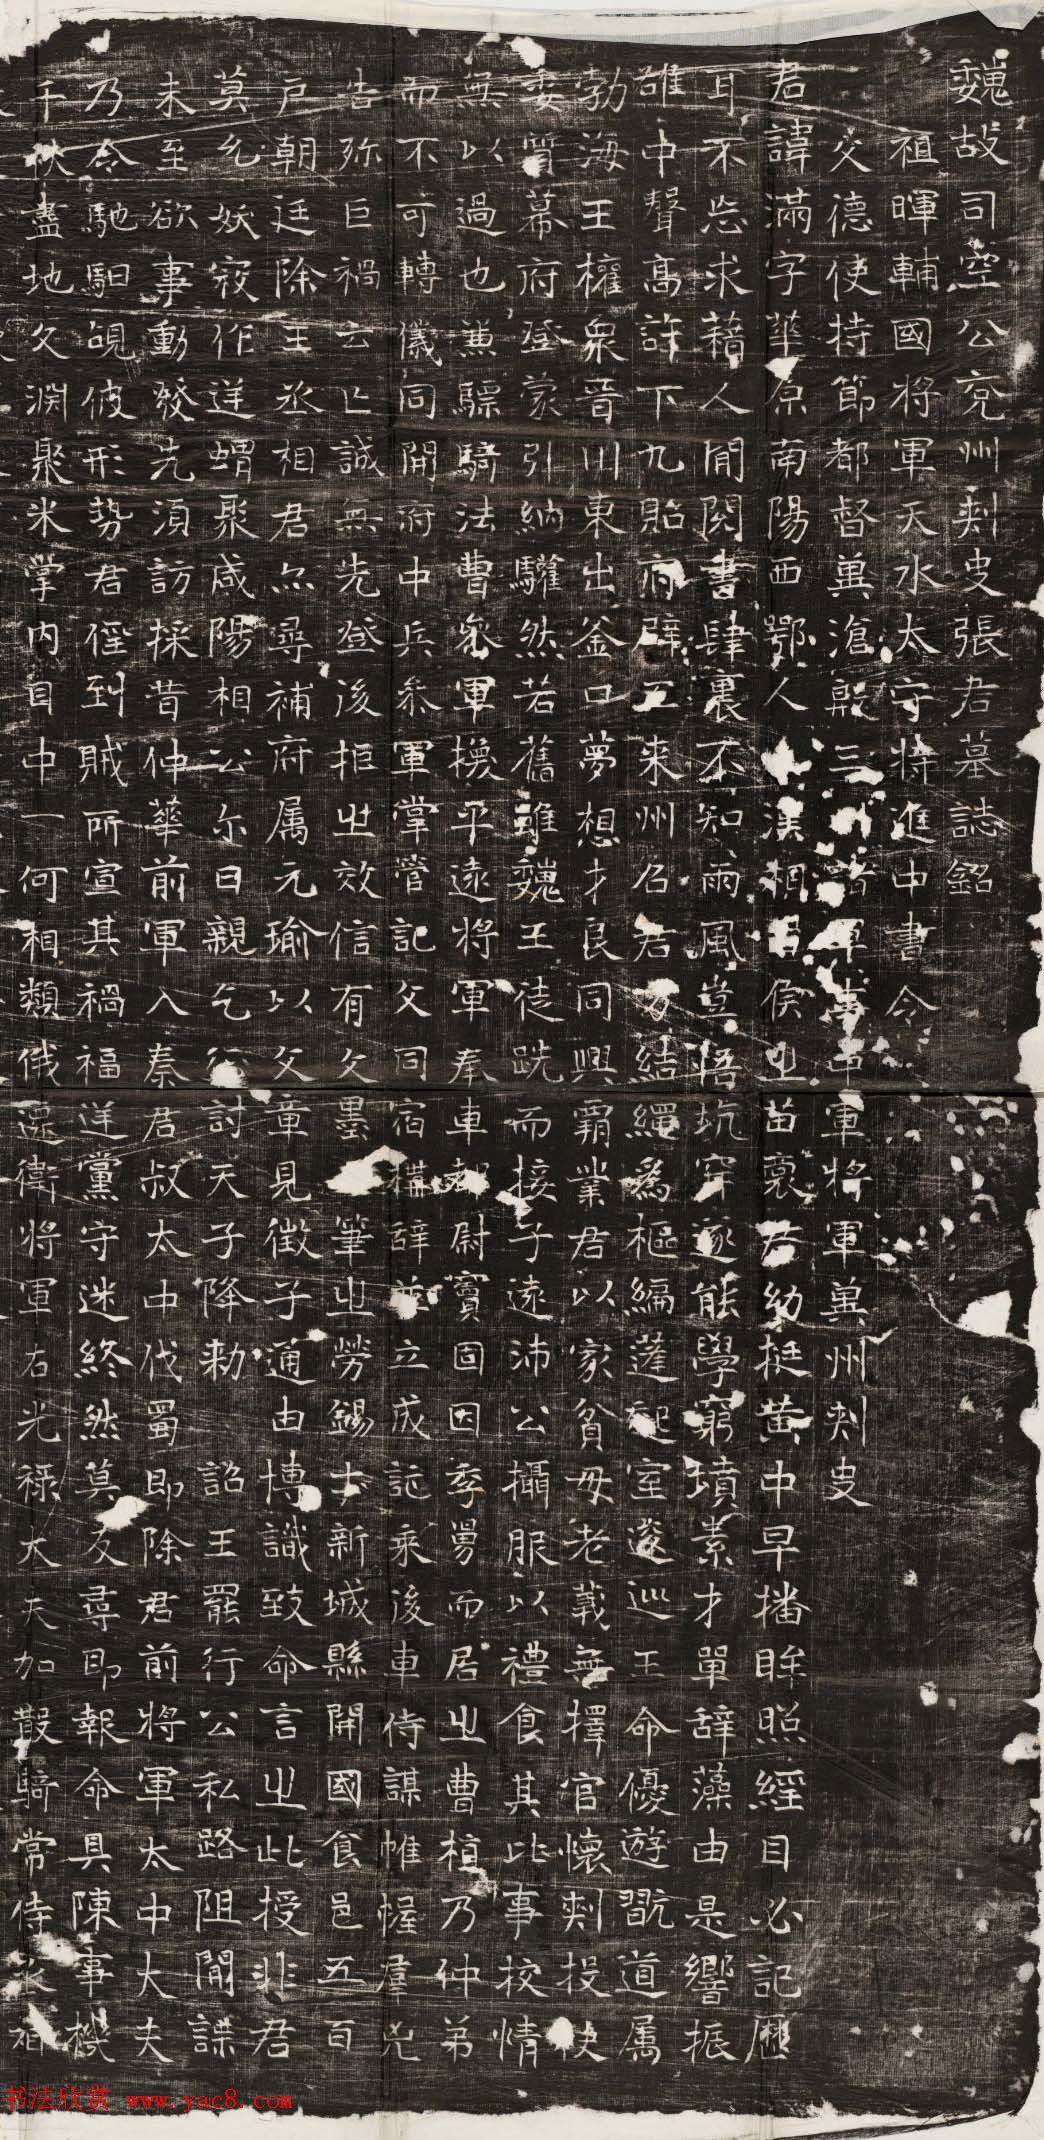 魏故司空公兗州刺史張君墓誌銘
祖暉輔國將軍天水太守特進中書令
父德使持節都督冀滄殷三州諸軍事中軍將軍冀州刺史
君諱滿字華原南陽西鄂人漢相侯之苗裔君幼挺黃中早播眸照經目必記歷
耳不忘求藉人間閱書肆裏不知雨風豈悟坑穽遂能學窮墳素才單辞藻由是響振
雄中聲高許下九府辟五來州召君方結繩為樞編蓬室遂巡王命優遊翫道属
勃海王權衆晉川東出釜口夢想才良同興霸業君以家貧母老義無擇官懷刺投快
委質幕府登蒙引納驩然若舊雖魏王徒跣而接子遠沛公攝服以禮食其比事校情
無以過也兼驃騎法曹參軍換平遠將軍奉車都尉竇固因季舅而居之曹植乃仲弟
而不可轉儀同開府中兵參軍掌管記父同宿構辞並立成託乘後車侍謀帷幄羣兇
告弥巨禍云亡誠無先登後拒之效信有文墨筆之勞錫士新城縣開國食邑五百
戶朝廷除王丞相君尒尋補府属元瑜以文章見徵子通由博識致命言之此授非君
莫允妖寇作逆蝟聚咸陽相公尒日親乞行討天子降勑詔王罷行公私路阻間諜
未至欲事動發先須訪採昔仲華前軍入秦君叔太中伐蜀即除君前將軍太中大夫
乃令馳馹覘彼形勢君僅到賊所宣其禍福逆黨守迷終然莫反尋即報命具陳事機
千伏盡地久淵聚米掌內目中一何相類俄遷衛將軍右光祿大夫加散騎常侍
书法欣赏 www.yac8.com